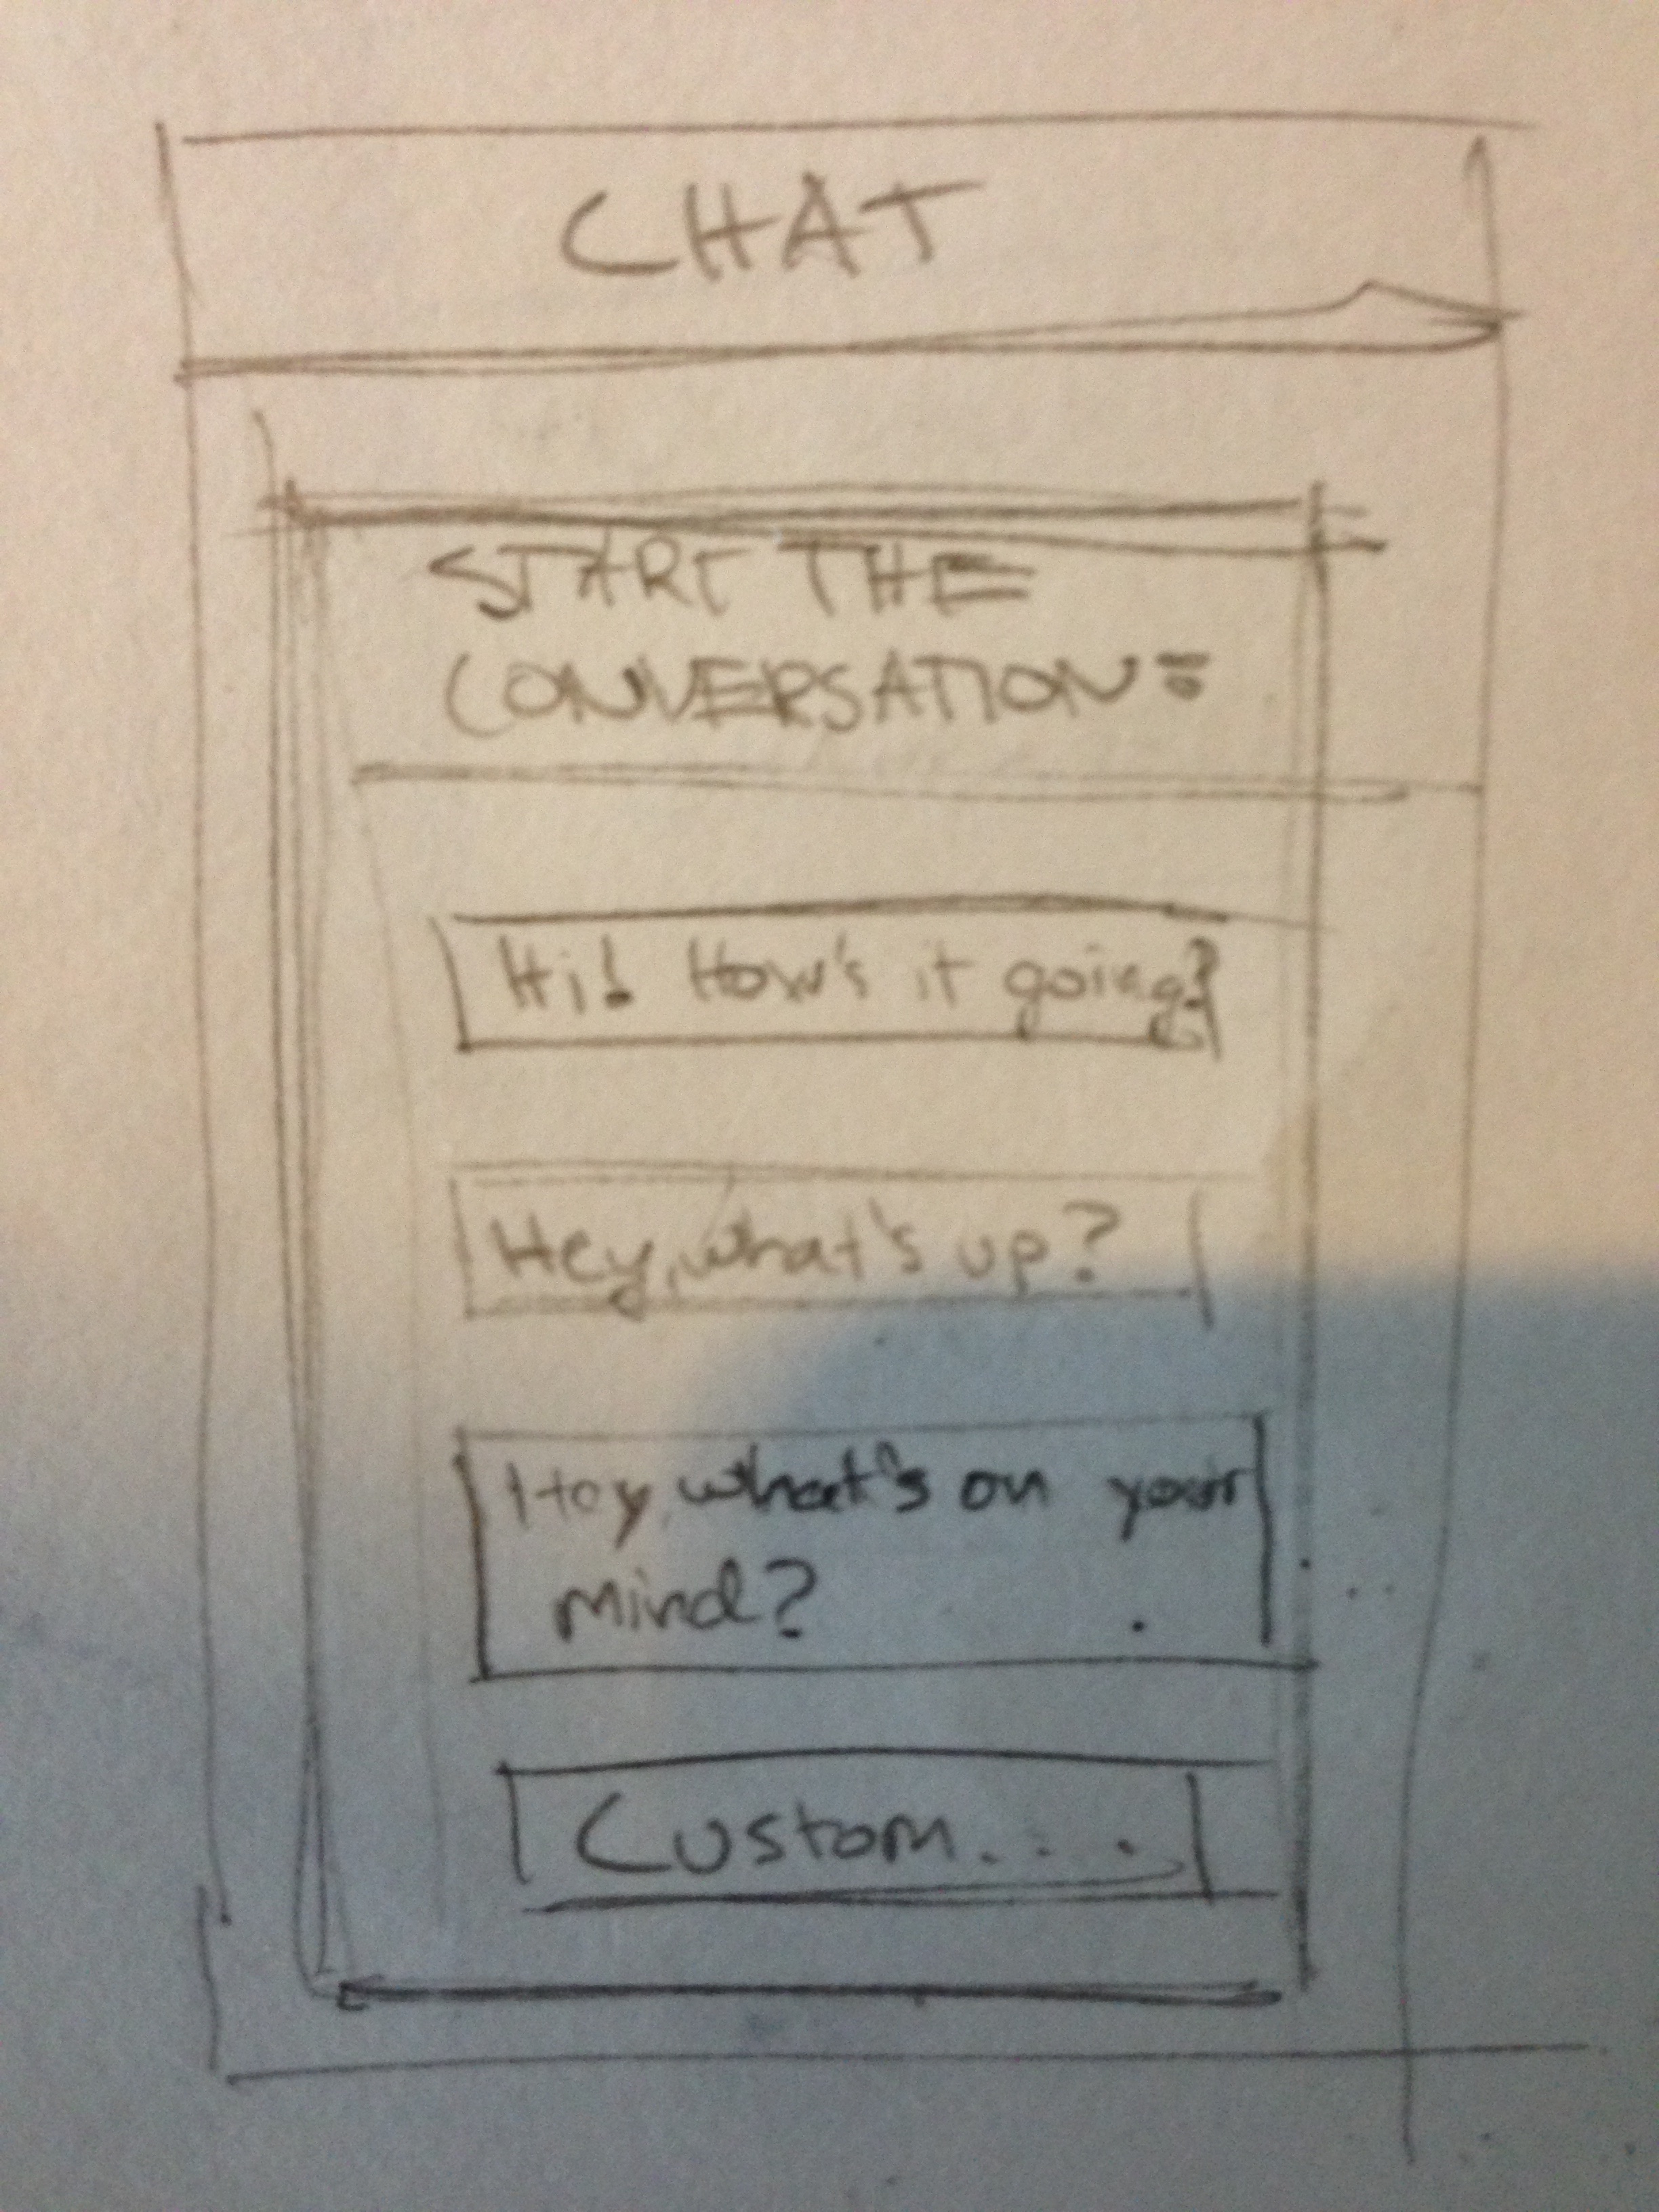 CHAT
START THE
CONVERSATION:
Hi! How's it going?
Hey, what's up?
Hey, what's on your
mind?
Custom....